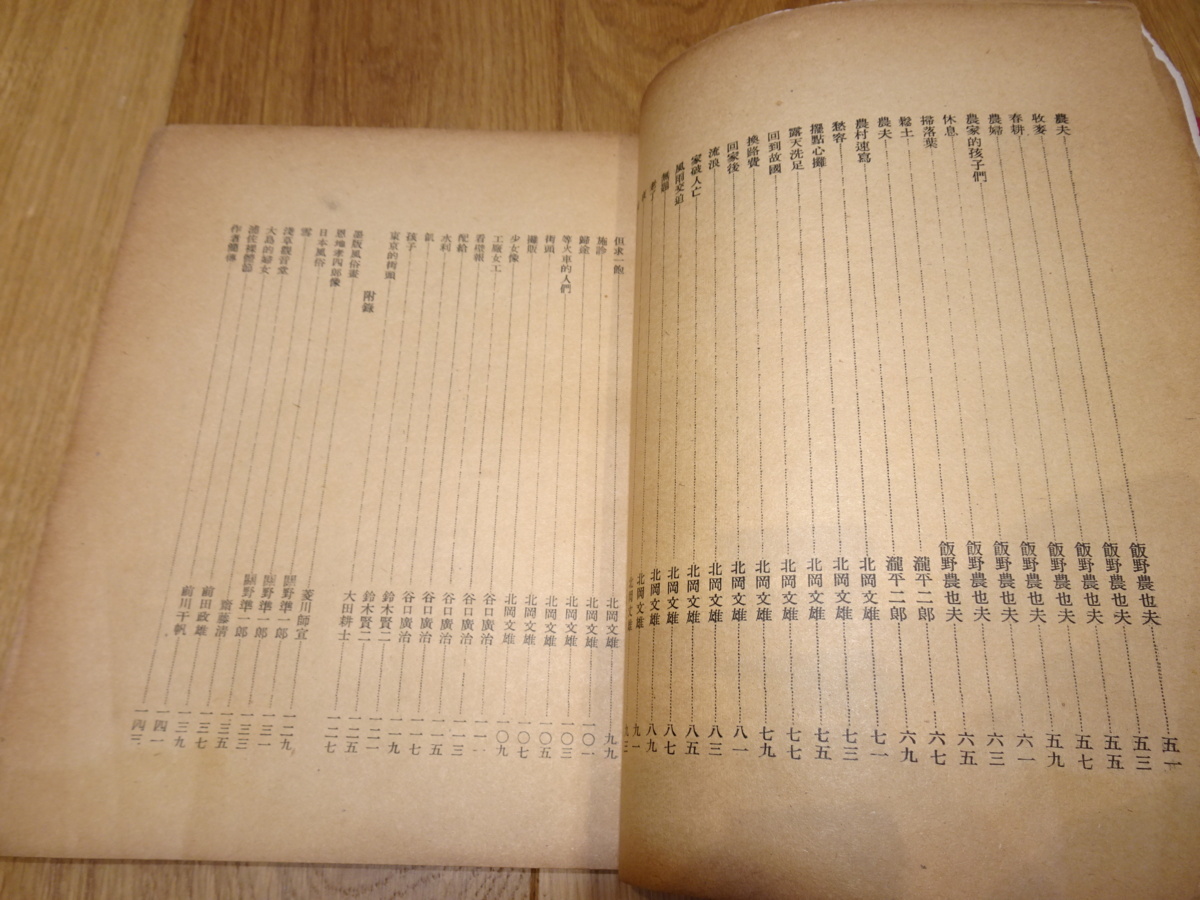 農夫 飯野農也夫 五一
收麥 飯野農也夫 五三
春耕 飯野農也夫 五五
農婦 飯野農也夫 五七
農家的孩子們 飯野農也夫 五九
休息 飯野農也夫 六一
掃落葉 飯野農也夫 六三
鬆土 飯野農也夫 六五
農夫 瀧平二郎 六七
農村速寫 瀧平二郎 六九
愁容 北岡文雄 七一
擺點心攤 北岡文雄 七三
露天洗足 北岡文雄 七五
回到故國 北岡文雄 七七
換路費 北岡文雄 七九
回家後 北岡文雄 八一
流浪 北岡文雄 八三
家破人亡 北岡文雄 八五
風雨交迫 北岡文雄 八七
無題 北岡文雄 八九
北岡文雄 九一
北岡文雄 九三
但求一飽 北岡文雄 九九
施診 北岡文雄 一〇一
歸途 北岡文雄 一〇三
等火車的人們 北岡文雄 一〇五
街頭 北岡文雄 一〇七
攤販 北岡文雄 一〇九
少女像 谷口廣治 一一
工廠女工 谷口廣治 一一三
看壁報 谷口廣治 一一五
配給 谷口廣治 一一七
水利 谷口廣治 一一九
飢 鈴木賢二 一二一
孩子 鈴木賢二 一二五
東京的街頭 大田耕士 一二七
附錄
墨版風俗畫 菱川師宣 一二九
恩地孝四郎像 關野準一郎 一三一
日本風俗 關野準一郎 一三三
雪 關野準一郎 一三五
淺草觀音堂 齋藤清 一三七
大島的婦女 前田政雄 一三九
浦佐裸體節 前川千帆 一四一
作者簡傳 一四三